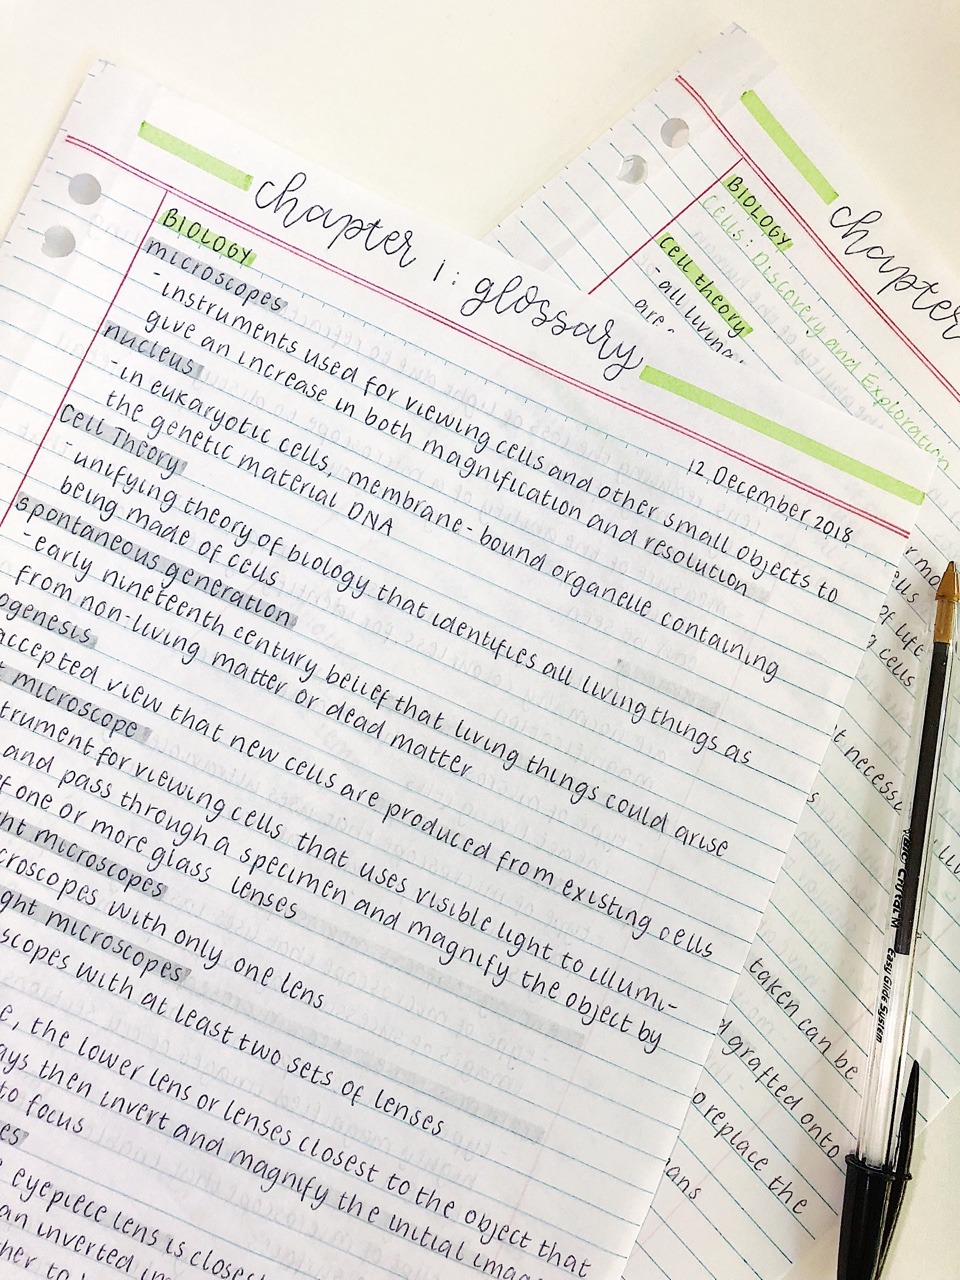 chapter 1: glossary
12 December 2018
BIOLOGY
microscopes
- instruments used for viewing cells and other small objects to
give an increase in both magnification and resolution
nucleus
- in eukaryotic cells, membrane-bound organelle containing
the genetic material DNA
Cell Theory
- unifying theory of biology that identifies all living things as
being made of cells
spontaneous generation
- early nineteenth century belief that living things could arise
from non-living matter or dead matter
ogenesis
accepted view that new cells are produced from existing cells
microscope
trument for viewing cells that uses visible light to illumi-
and pass through a specimen and magnify the object by
f one or more glass lenses
microscopes
croscopes with only one lens
ght microscopes
scopes with at least two sets of lenses
e, the lower lens or lenses closest to the object that
ays then invert and magnify the initial imag
to focus
es
eyepiece lens is closes
an inverted im
her to
chapter
BIOLOGY
Cells: Discovery and Exploration
Cell theory
- all living
are
r mo
ells
of life
g cells
t necess
s
taken can be
d grafted onto
o replace the
ans
Cristal M
Easy Glide System